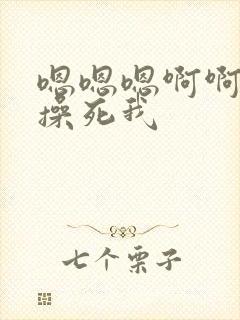 嗯嗯嗯啊啊
操死我
七个栗子